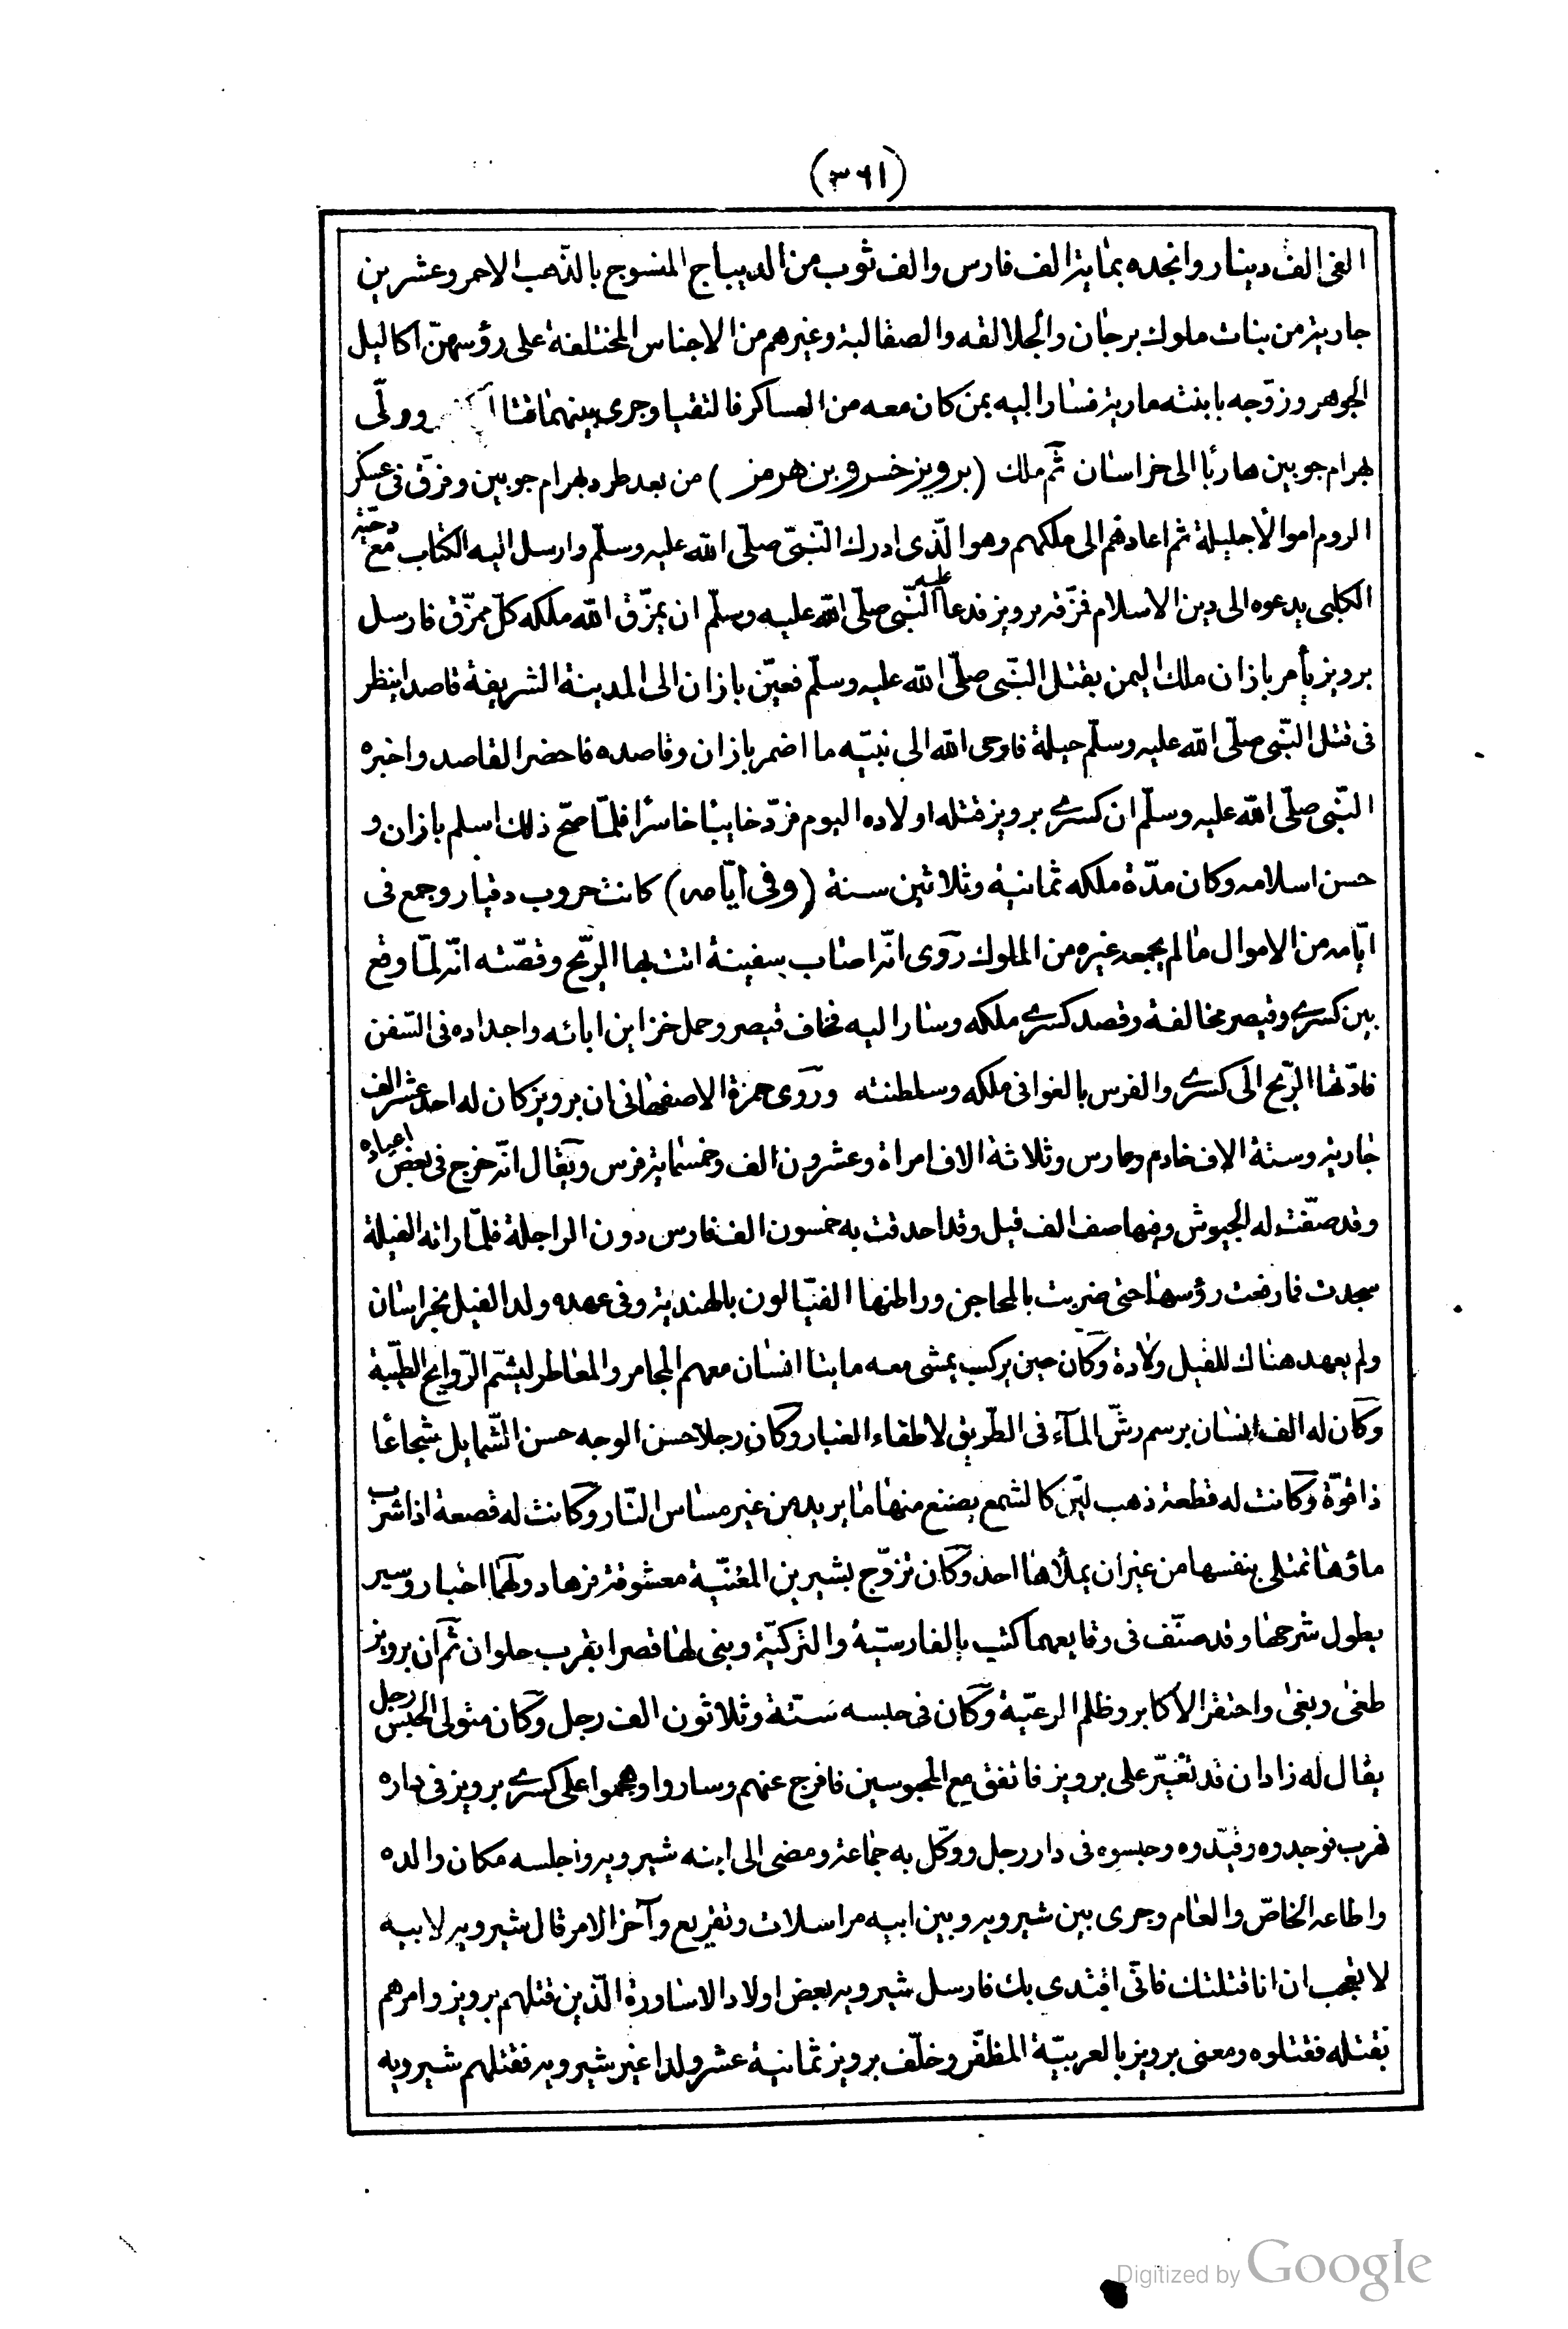 (٣٦١)
الفى الف دينار وانجده بمائة الف فارس والف ثوب من الديباج المنسوج بالذّهب الاحمر وعشرين
جارية من بنات ملوك برجان والجلالقه والصقالبة وغيرهم من الاجناس المختلفة على رؤسهنّ اكاليل
الجوهر وزوّجه بابنته مارية فسار اليه بمن كان معه من العساكر فالتقيا وجرى بينهما وولّى
بهرام جوبين هاربًا الى خراسان ثمّ ملك (برويز خسرو بن هرمز) من بعد طرد بهرام جوبين وفرّق فى عسكر
الروم اموالًا جليلة ثم اعادهم الى ملكهم وهو الّذى ادرك النّبىّ صلّى الله عليه وسلّم وارسل اليه الكتاب مع دحية
الكلبى يدعوه الى دين الاسلام فمزّقه برويز فدعا عليه النّبى صلّى الله عليه وسلّم ان يمزّق الله ملكه كلّ ممزّق فارسل
برويز يأمر باذان ملك اليمن بقتل النّبى صلّى الله عليه وسلّم فعيّن باذان الى المدينة الشريفة قاصدا ينظر
فى قتل النّبى صلّى الله عليه وسلّم حيلة فاوحى الله الى نبيّه ما اضمر باذان وقاصده فاحضر القاصد واخبره
النّبى صلّى الله عليه وسلّم ان كسرى برويز قتله اولاده اليوم فردّ خايبا خاسرًا فلمّا صحّ ذلك اسلم باذان و
حسن اسلامه وكان مدّة ملكه ثمانية وثلاثين سنة (وفى ايّامه) كانت حروب دقيار وجمع فى
ايّامه من الاموال ما لم يجمعه غيره من الملوك روى انّه اصاب سفينة اتت بها الرّيح وقصّته انّه لمّا وقع
بين كسرى وقيصر مخالفة وقصد كسرى ملكه وسار اليه فخاف قيصر وحمل خزاين ابائه واجداده فى السّفن
فادّتها الرّيح الى كسرى والفرس بالغوا فى ملكه وسلطنته وروى حمزة الاصفهانى ان برويز كان له احد عشر الف
جارية وستة الاف خادم وحارس وثلاثة الاف امراة وعشرون الف وخمسمائة فرس ويقال انّه خرج فى بعض اعياده
وقد صفّت له الجيوش وفيها صف الف فيل وقد احدقت به خمسون الف فارس دون الراجلة فلمّا راته الفيلة
سجدت فما رفعت رؤسها حتى ضربت بالمحاجن وراطنها الفيّالون بالهندية وفى عهده ولد الفيل بخراسان
ولم يعهد هناك للفيل ولادة وكان حين يركب يمشى معه مايتا انسان معهم المجامر والمعاطر ليشمّ الرّوايح الطّيّبة
وكان له الف انسان برسم رشّ المآء فى الطّريق لاطفاء الغبار وكان رجلا حسن الوجه حسن الشّمايل شجاعًا
ذا قوّة وكانت له قطعة ذهب ليّن كالشمع يصنع منها ما يريد من غير مساس النّار وكانت له قصعة اذا شرب
ماؤها تمتلى بنفسها من غير ان يملأها احد وكان تزوّج بشيرين المغنّية معشوقة فرهاد ولهما اخبار وسير
يطول شرحها وقد صنّف فى وقايعهما كتب بالفارسيّة والتركيّة وبنى لها قصرا بقرب حلوان ثمّ ان برويز
طغى وبغى واحتقر الاكابر وظلم الرعيّة وكان فى حبسه ستّة وثلاثون الف رجل وكان متولى الحبس رجل
يقال له زادان قد تغيّر على برويز فاتفق مع المحبوسين فافرج عنهم وساروا وهجموا على كسرى برويز فى داره
فهرب فوجدوه وقيّدوه وحبسوه فى دار رجل ووكّل به جماعة ومضى الى ابنه شيرويه واجلسه مكان والده
واطاعه الخاصّ والعام وجرى بين شيرويه وبين ابيه مراسلات وتقريع وآخر الامر قال شيرويه لابيه
لا تعجب ان انا قتلتك فانّى اقتدى بك فارسل شيرويه بعض اولاد الاساورة الّذين قتلهم برويز وامرهم
بقتله فقتلوه ومعنى برويز بالعربيّة المظفّر وخلّف برويز ثمانية عشر ولدا غير شيرويه فقتلهم شيرويه
Digitized by Google